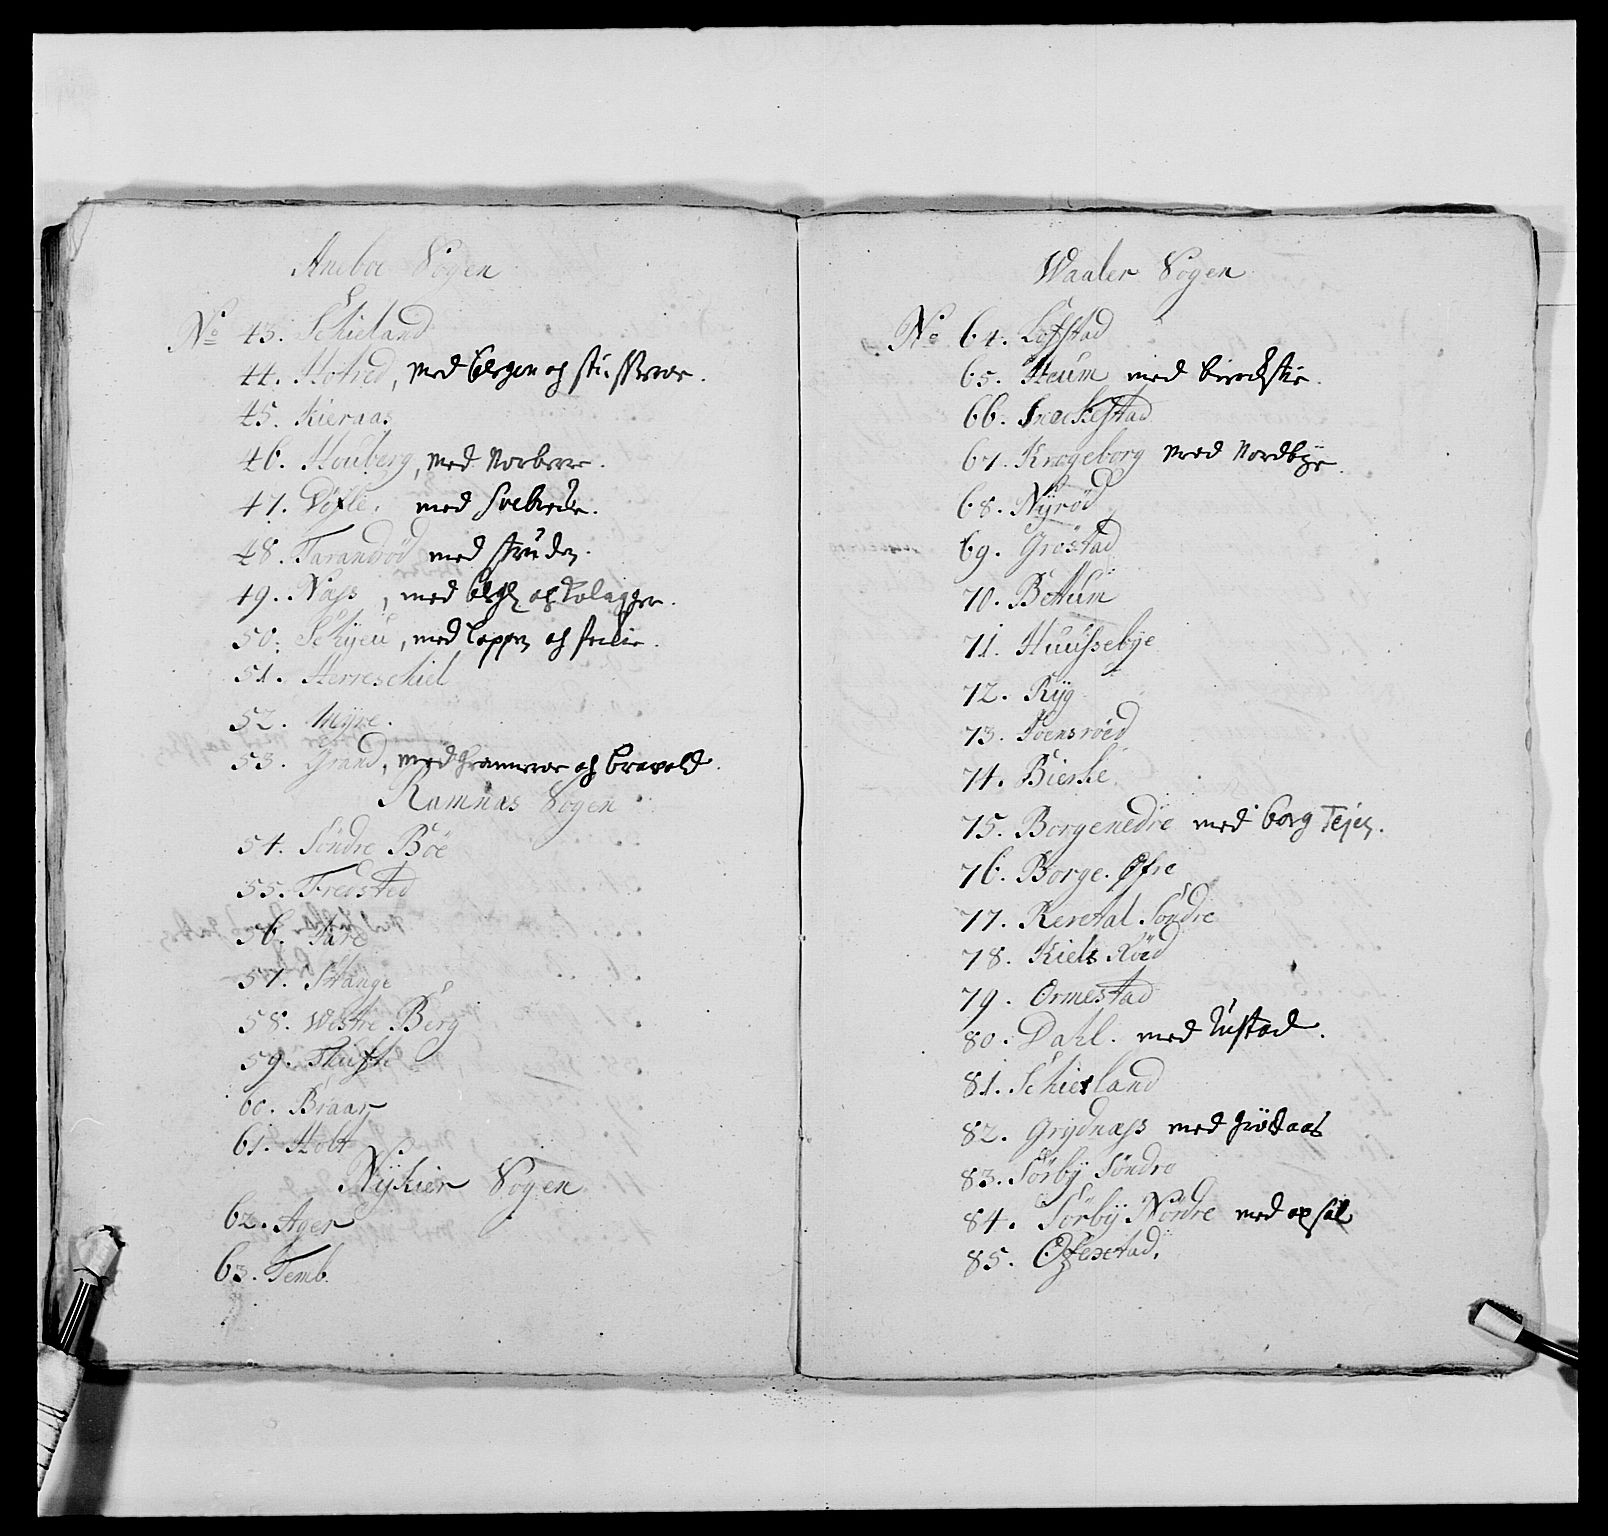 Aneboe Sogen
No 43. Schieland
44. Holned, med bergen og
45. Kieraas
46. Houberg, med Norbere.
47. Vifle. med Solberde.
48. Tarandrød med struden.
49. Næss, med bergs og Tolagger.
50. Schyeu, med Coppen og
51. Herreschiel
52. Myre.
53. Grand, med og bravold.
Ramnæs Sogen
54. Söndre Böe
55. Fredsted
56. Fare
57. Stange
58. Westre Berg
59. Thufte
60. Braar
61. Holt
Nykier Sogen
62. Ager
63. Temb.
Waaler Sogen
No 64. Lofstad
65. Heum med
66. Snackestad
67. Krogeborg med Nordbye.
68. Nyrød
69. Grøstad
70. Bettum
71. Huussebye
72. Ryg
73. Toensröed
74. Bierke
75. Borgenedre med borg Tejen.
76. Borge. Øfre
77. Reretal Söndre
78. Kiels Röed
79. Ormestad
80. Dahl. med Rustad.
81. Schieland
82. Grydnæss med Grödaas
83. Sörby Söndre
84. Sörby Nordre med opsal
85. Øfrestad.